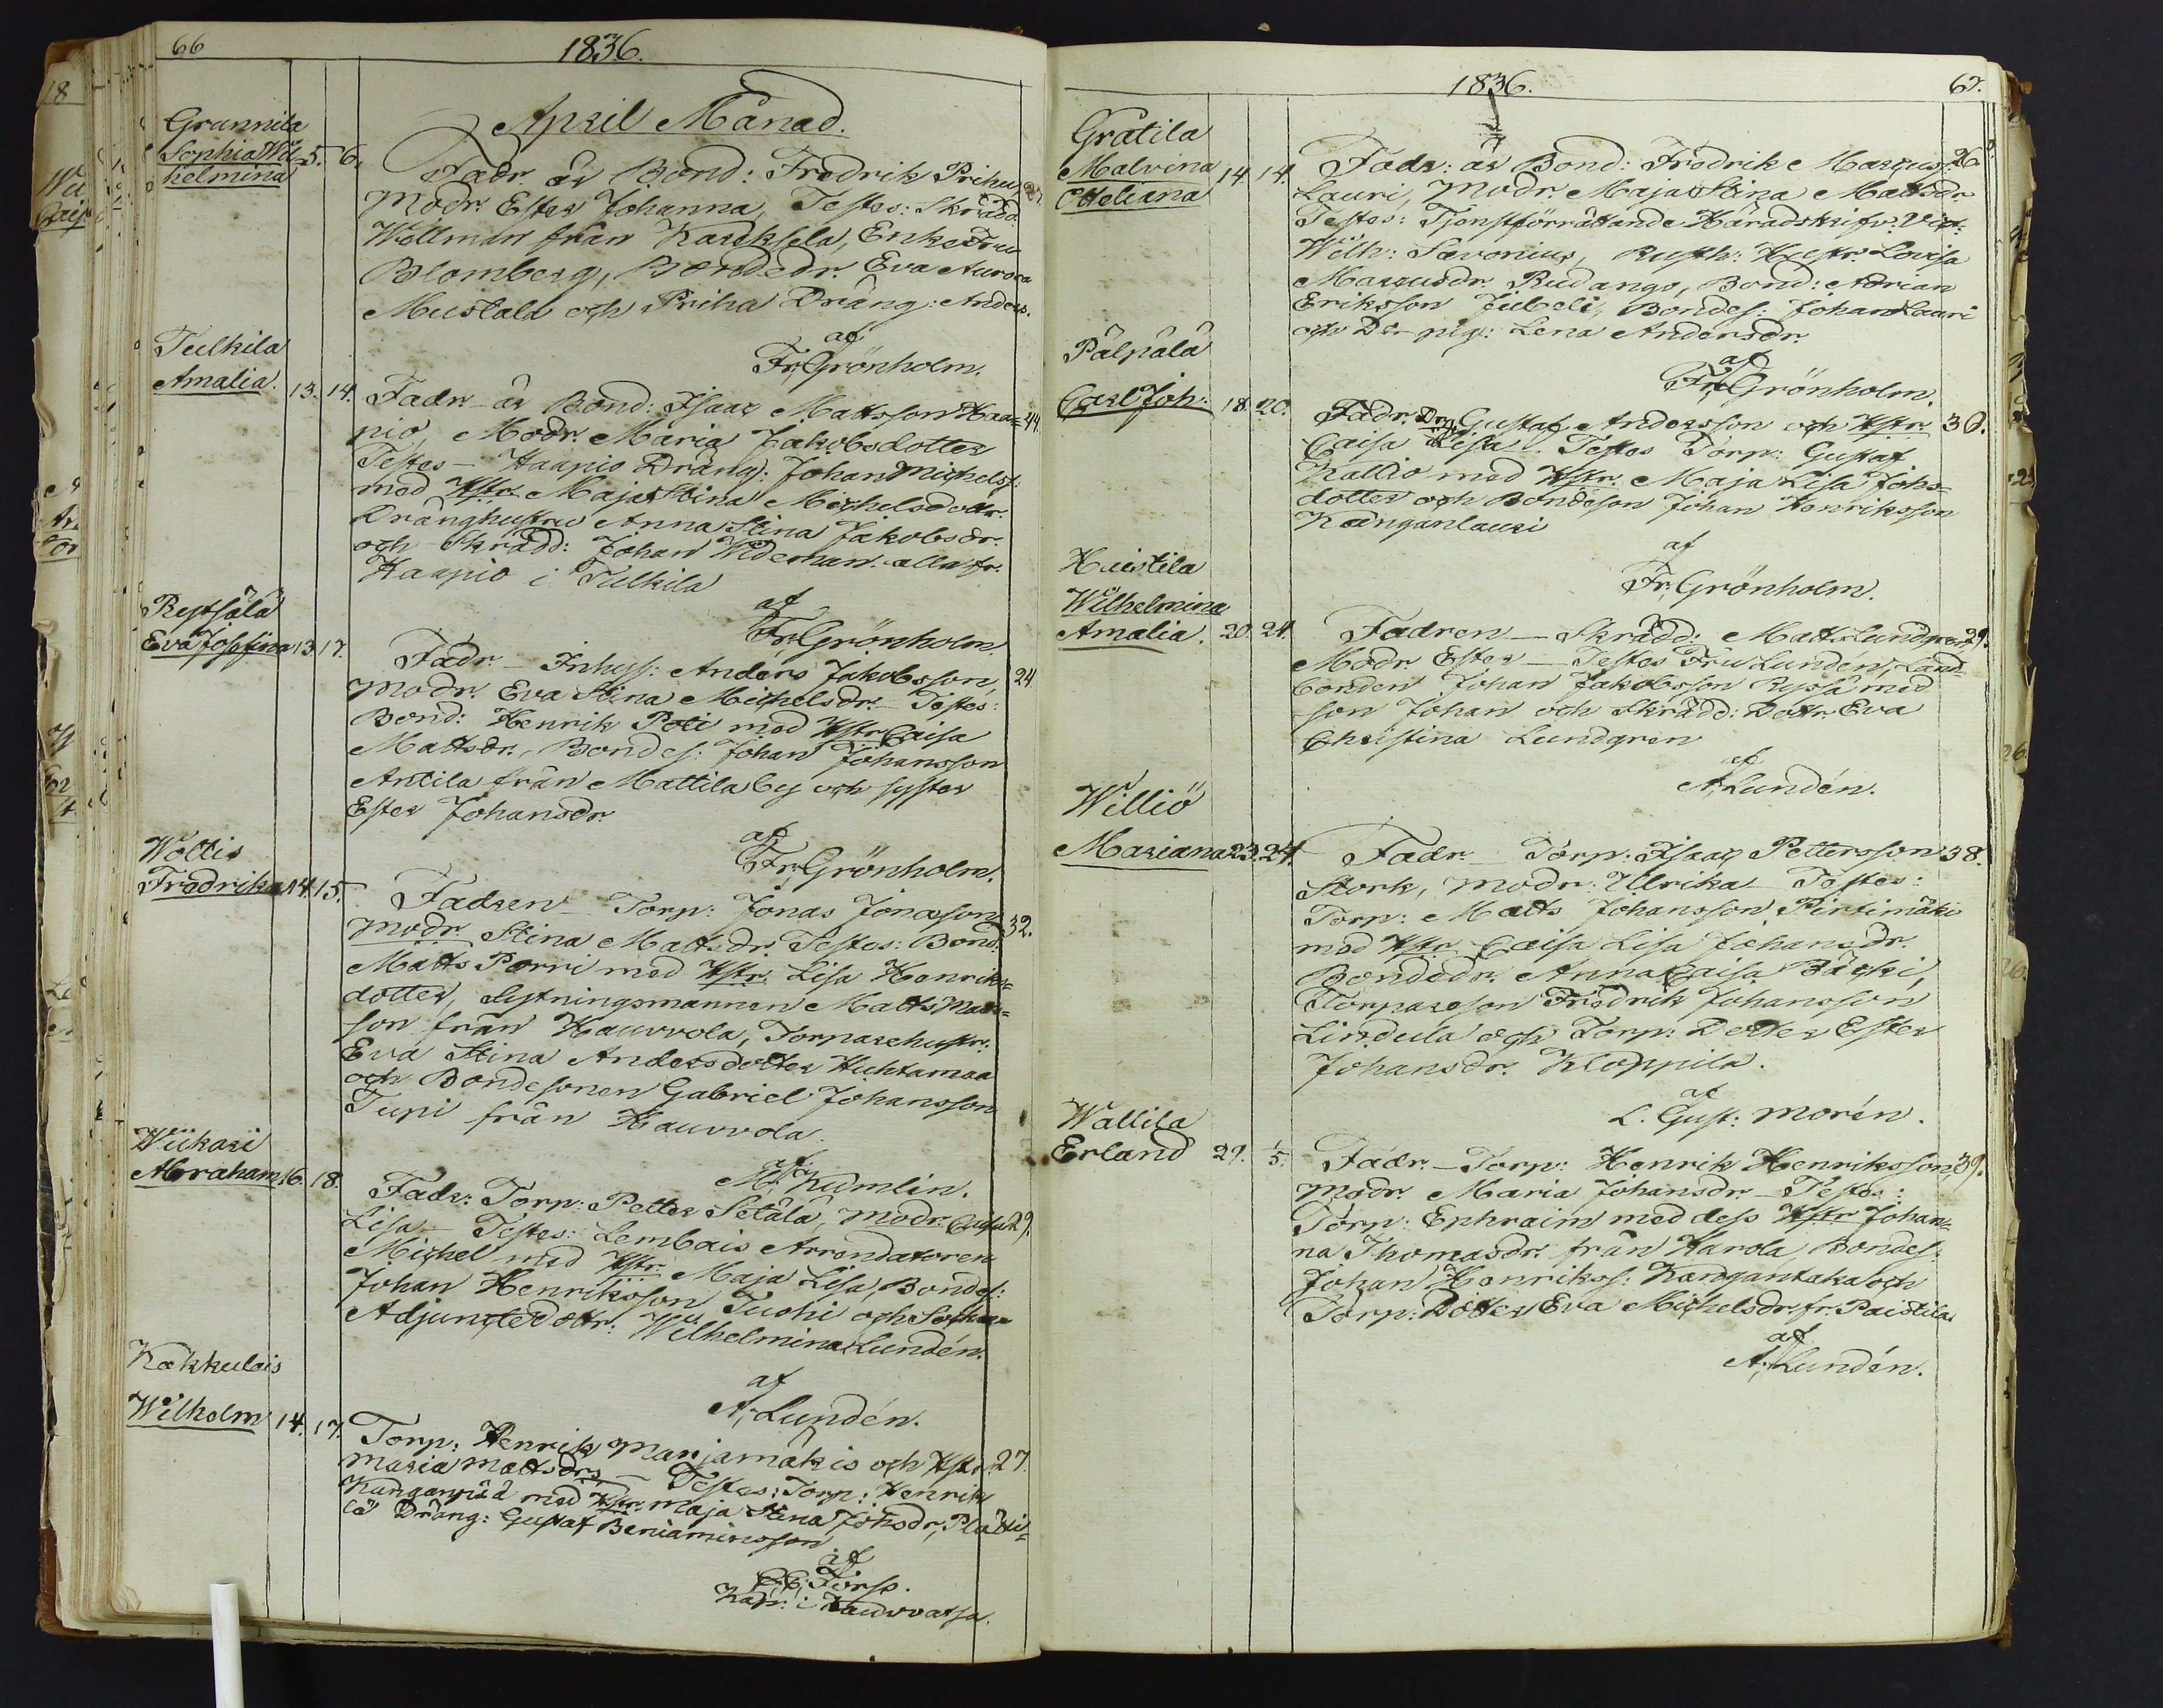 66
1836.
April Månad.
Grunnila
Sophia Wil-
helmina
5. 6.
Fadr. är Bond: Fredrik Prihu
Modr. Ester Johanna, Testes: Skrädd.
Wellman från Kareksela, Enkefru
Blomberg, Bondedr. Eva Aurora
Mustala och Priha Dräng: Anders.
af
Fr: Grönholm.
Tulkila
Amalia. 13. 14.
Fadr. är Bond: Isaac Mattsson Haa= 44.
pio, Modr. Maria Jakobsdotter
Testes – Haapio Dräng: Johan Michelss:
med Hstr. Maja Stina Michelsdottr.
Dränghustru Anna Stina Jakobsdr.
och Skrädd: Johan Wideman. alla fr.
Haapio i Tulkila
af
Fr: Grönholm.
Reptsälä
Eva Josefina 13. 17.
Fadr. – Inhyss: Anders Jakobsson, 24
Modr. Eva Stina Michelsdr. – Testes:
Bond: Henrik Poti med Hstr Caisa
Mattsdr., Bondes: Johan Johansson
Antila från Mattila by och syster
Ester Johansdr.
af
Fr: Grönholm.
Woltis
Fredrika 14. 15.
Fadren – Torp: Jonas Jonasson 32.
Modr. Stina Mattsdr. Testes: Bond.
Matts Perri med Hstr. Lisa Henriks=
dotter, Lytningsmannen Matts Matts=
son från Hauvvola, Torparehustr:
Eva Stina Andersdotter Huhtamaa
och Bondesonen Gabriel Johansson
Tupi från Hauvvola.
af
M. Kumlin.
Wiikari
Abraham 16. 18.
Fadr: Torp: Petter Setälä, Modr. Caisa 29.
Lisa – Testes: Lembais Arrendatoren
Michel med Hstr. Maja Lisa, Bondes:
Johan Henriksson Tuohi och Sockne
Adjuncte Dottr: Wilhelmina Lundén.
af
A. Lundén.
Kakkulais
Wilhelm 14. 17.
Torp: Henrik Marjamäkis och Hstr. 27.
Maria Mattsdrs – Testes: Torp: Henrik
Kanganpää med Hstr. Maja Stina Johsdr, Plättil=
lä Dräng: Gustaf Beniaminsson
af
Torsp.
Kapn: i Kauvvatsa.
1836.
67.
Gratila
Malvina 14. 14.
Otteliana
Fadr: är Bond: Fredrik Marcuss: 26
Lauri, Modr. Maja Stina Mattsdr.
Testes: Tjenstförrättande Häradsskrifv: Vict:
Wilh: Savonius, Rusth: Hustr. Lovisa
Marcusdr. Rudango, Bond: Adrian
Eriksson Jubeli, Bondes: Johan Lauri
och Der pig: Lena Andersdr.
af
Fr: Grönholm.
Pälpälä
Carl Joh: 18. 20.
Fadr. Drg. Gustaf Andersson och Hstr. 30.
Caisa Lisa. Testes Torp: Gustaf
Kallio med Hstr. Maja Lisa Johs=
dotter och Bondeson Johan Henriksson
Kanganlauri
af
Fr: Grönholm.
Huistila
Wilhelmina
Amalia. 20. 24.
Fadren – Skrädd: Matts Lundgren, 29.
Modr Ester – Testes Fru Lundén, Land=
bonden Johan Jakobsson Ryssä med
son Johan och Skrädd: Dottr. Eva
Christina Lundgren
af
A. Lundén.
Williö
Mariana 23. 24.
Fadr. – Torp: Isaac Pettersson 38.
Stork, Modr: Ullrika – Testes:
Torp: Matts Johansson Pirtimäki
med Hstr. Caisa Lisa Johansdr.
Bondedr. Anna Caisa Bäcki,
Torpareson Fredrik Johansson
Lindula och Torp: Dotter Ester
Johansdr. Kloppila.
af
L. Gust: Morén.
Wallila
Erland 29. 1/5.
Fadr. – Torp: Henrik Henriksson, 39.
Modr. Maria Johansdr. – Testes:
Torp: Ephraim med dess Hstr Johan=
na Thomasdr. från Harola Bondes:
Johan Henrikss: Kangantaka och
Torp: Dotter Eva Michelsdr. fr. Paistila
af
A. Lundén.